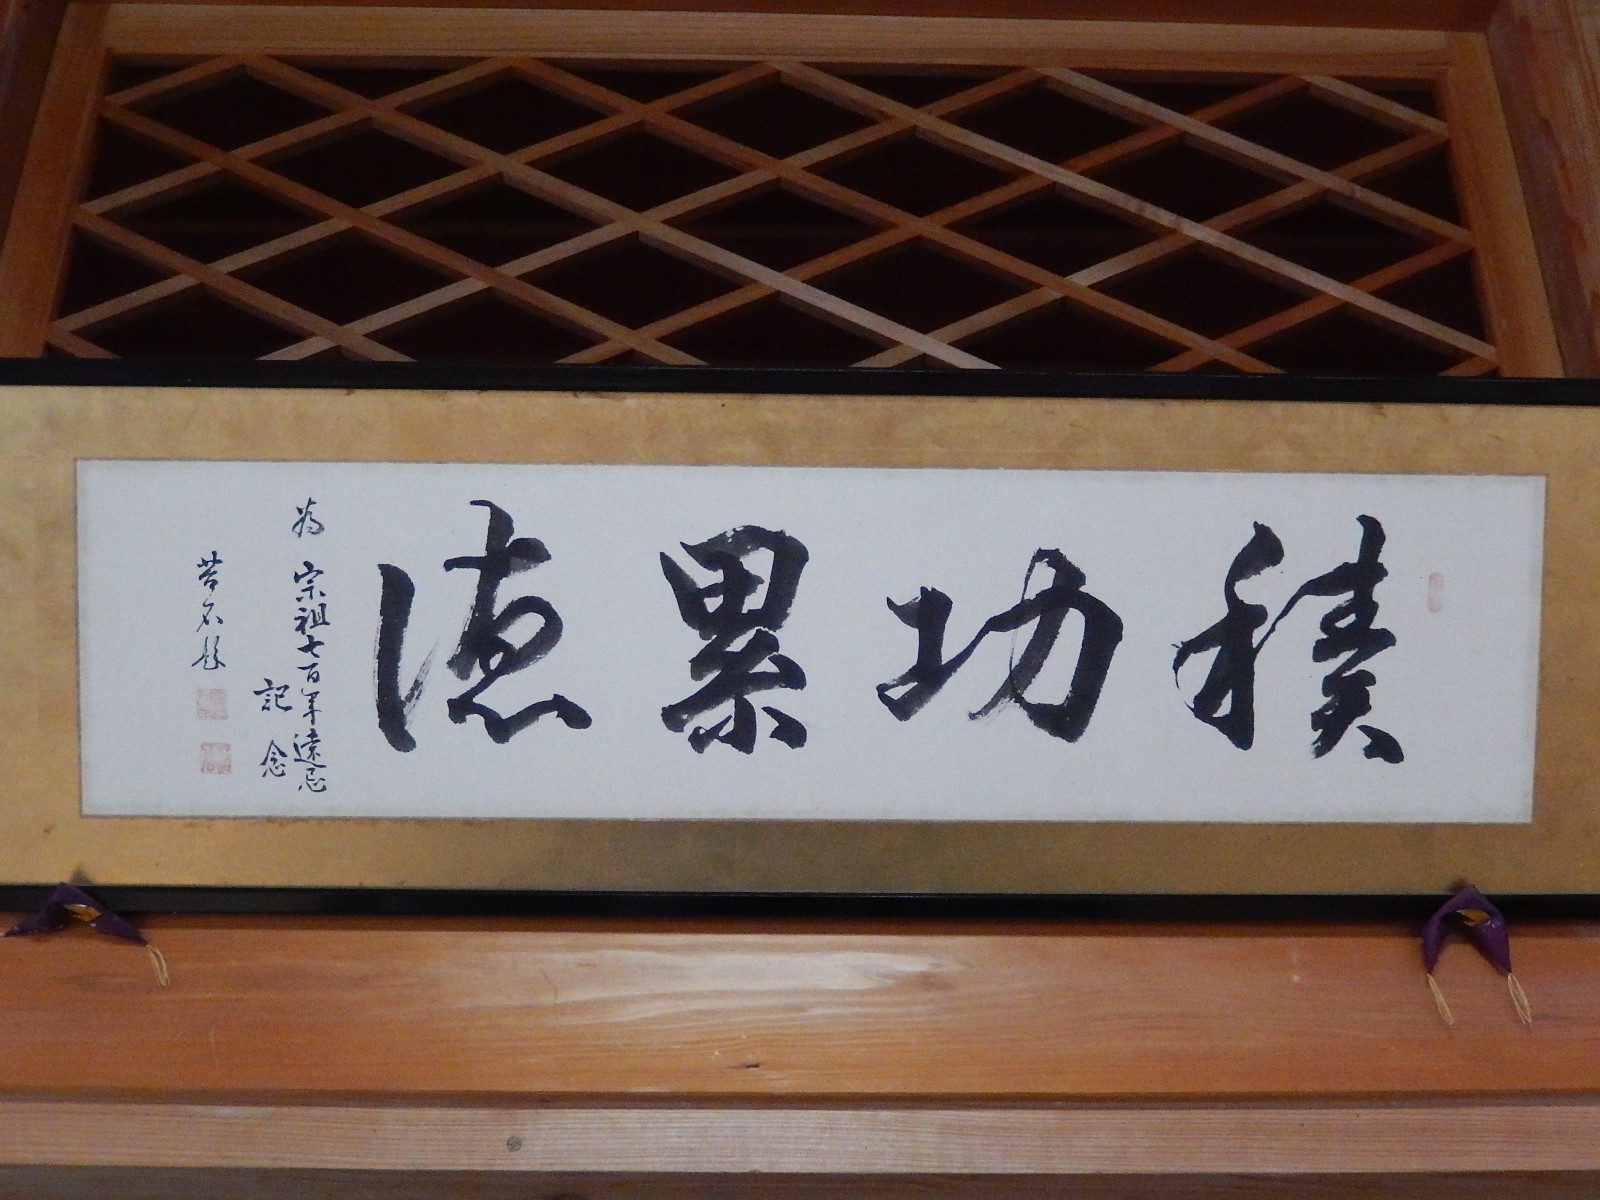 積功累徳
為 宗祖七百年遠忌
記念
苔石題